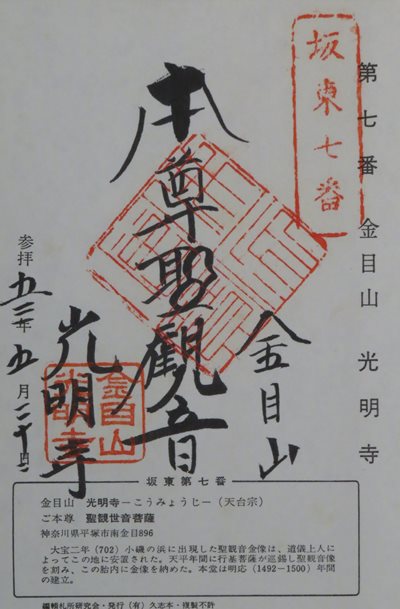 第七番 金目山 光明寺
坂東七番
本尊聖觀音
金目山
光明寺
金目山
光明寺
参拝 五三年 五月二十日
坂東第七番
金目山 光明寺−こうみょうじ−（天台宗）
ご本尊 聖観世音菩薩
神奈川県平塚市南金目896
大宝二年（702）小磯の浜に出現した聖観音金像は、道儀上人に
よってこの地に安置された。天平年間に行基菩薩が巡錫し聖観音像
を刻み、この胎内に金像を納めた。本堂は明応（1492−1500）年間
の建立。
編輯札所研究会・発行（有）久志本・複製不許